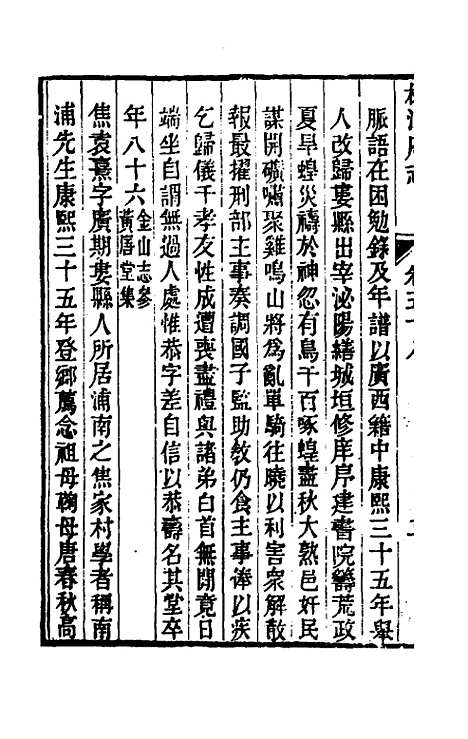 脈語在困勉錄及年譜以廣西籍中康熙三十五年舉
人改歸婁縣出宰泌陽繕城垣修庠序建書院籌荒政
夏旱蝗災禱於神忽有鳥千百啄蝗盡秋大熟邑奸民
謀開礦嘯聚雞鳴山將為亂單騎往曉以利害衆解散
報最擢刑部主事奏調國子監助敎仍食主事俸以疾
乞歸儀千孝友性成遭喪盡禮與諸弟白首無閒竟日
端坐自謂無過人處惟恭字差自信以恭壽名其堂卒
年八十六金山志參
黃唐堂集
焦袁熹字廣期婁縣人所居浦南之焦家村學者稱南
浦先生康熙三十五年登鄉薦念祖母鞠母唐春秋高